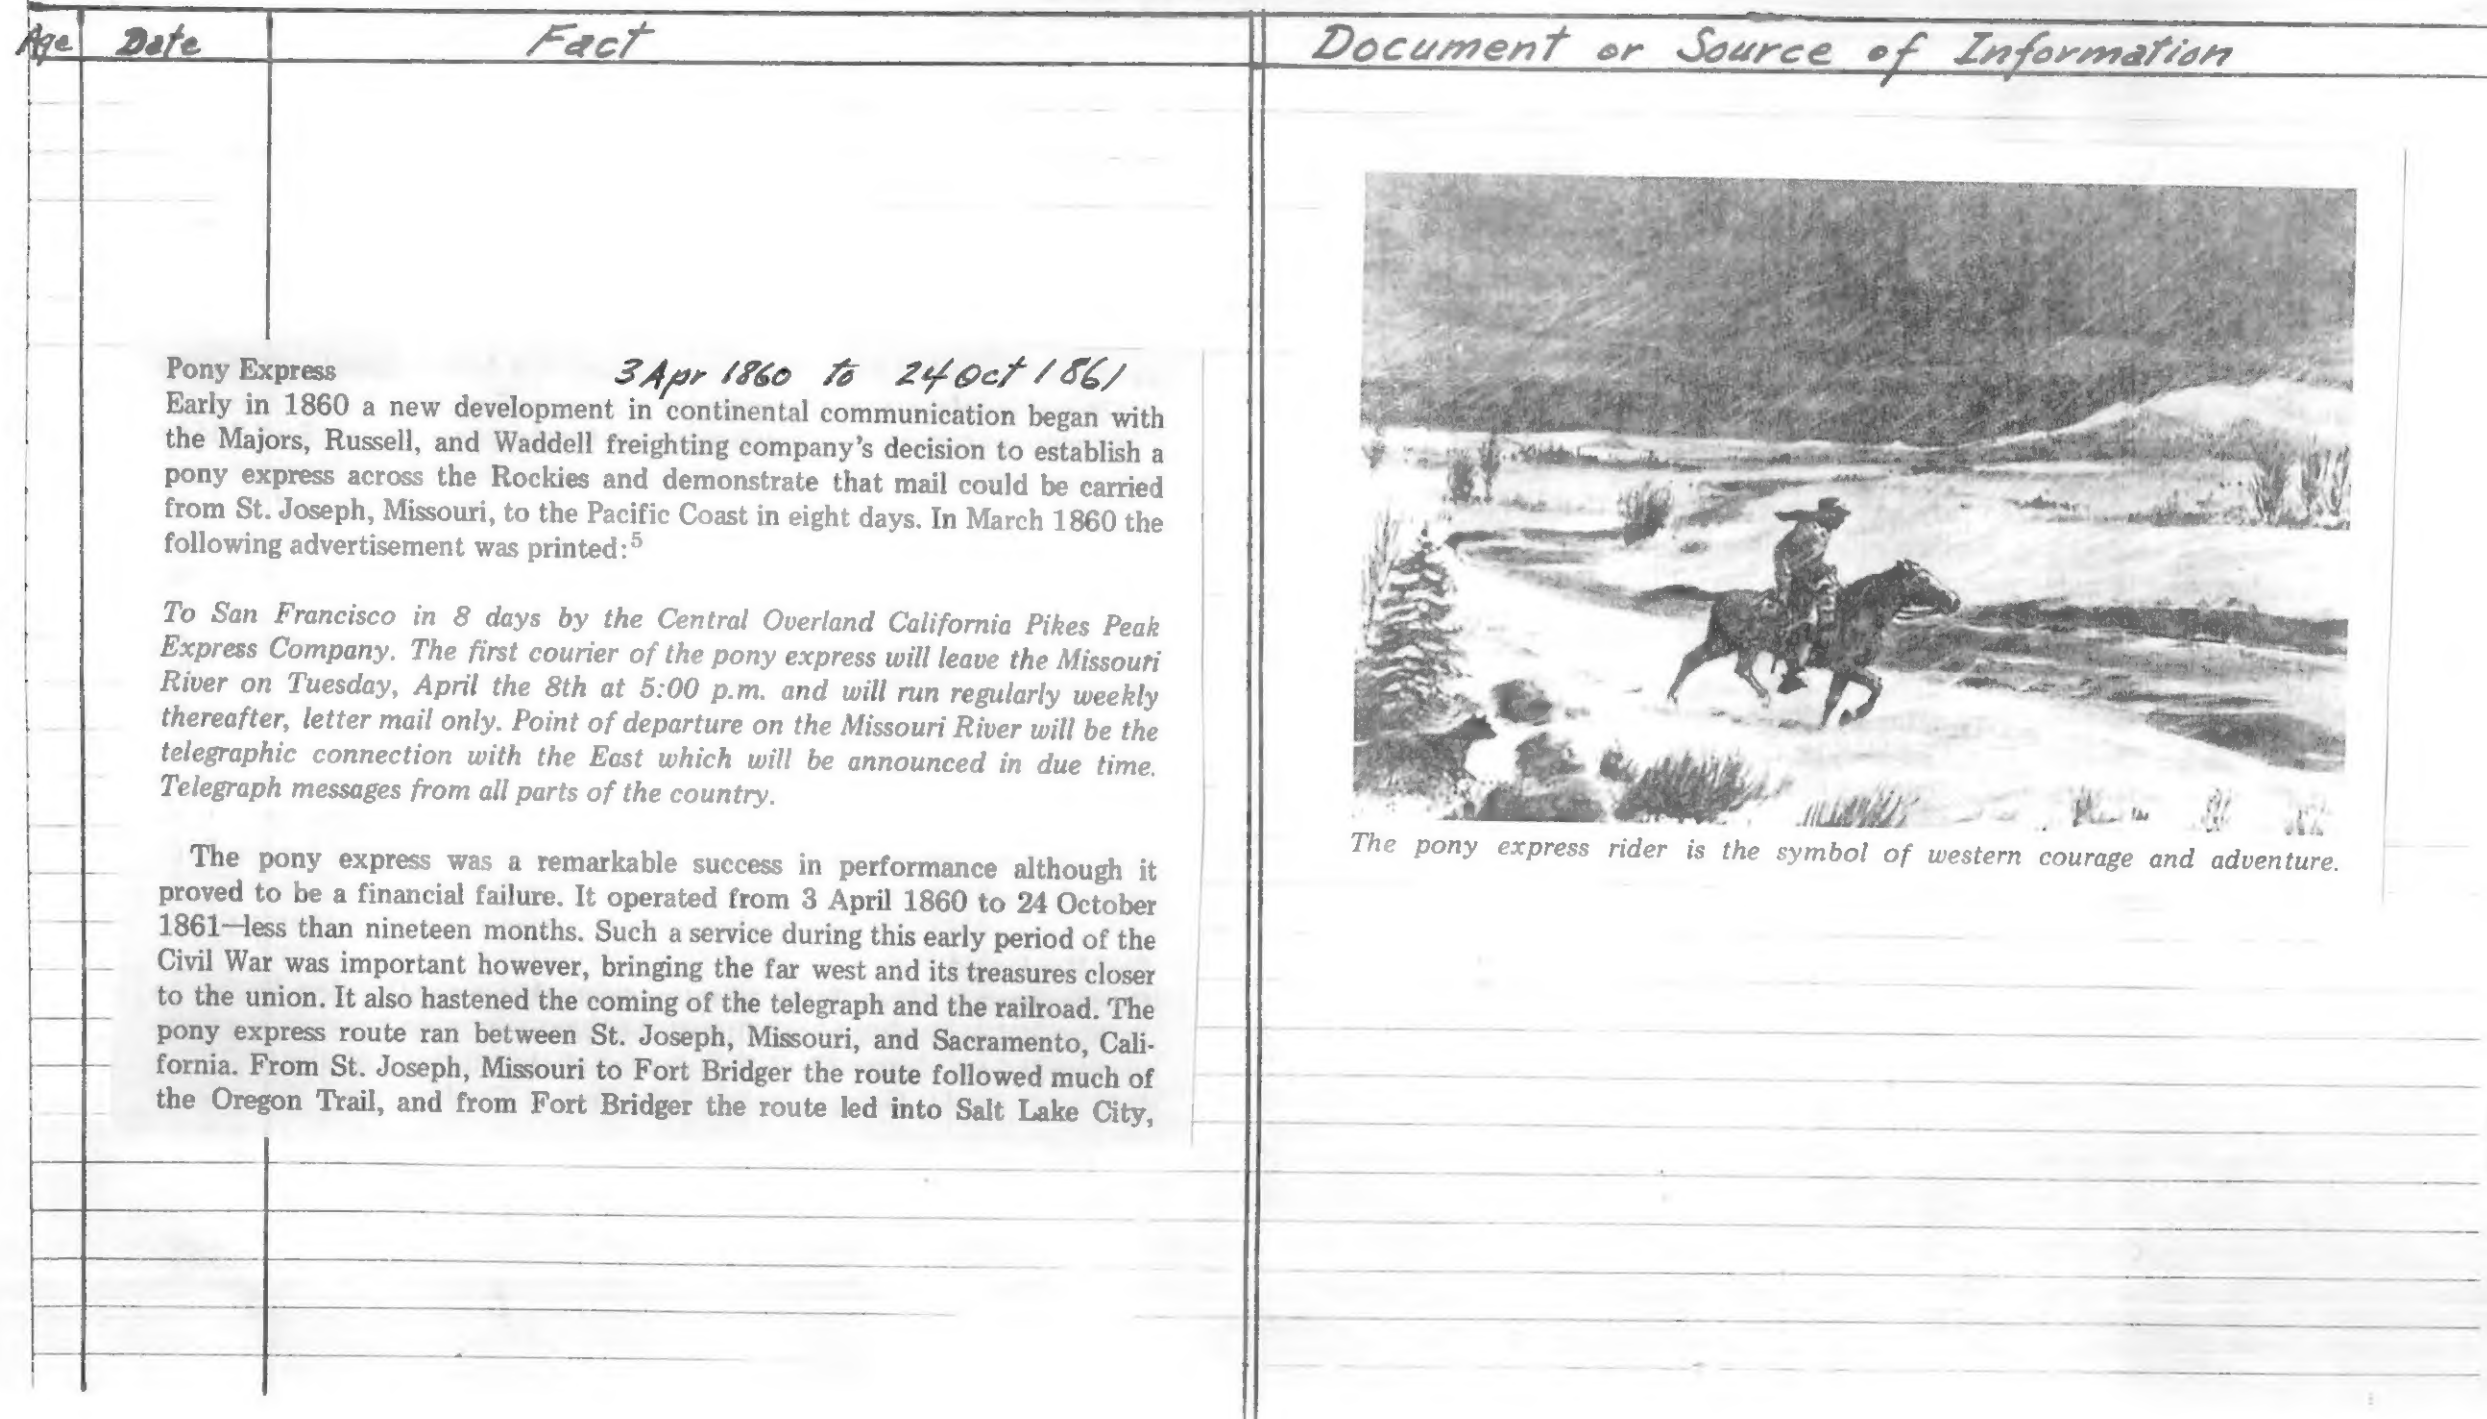 Age Date Fact Document or Source of Information
Pony Express 3 Apr 1860 to 24 Oct 1861
Early in 1860 a new development in continental communication began with
the Majors, Russell, and Waddell freighting company's decision to establish a
pony express across the Rockies and demonstrate that mail could be carried
from St. Joseph, Missouri, to the Pacific Coast in eight days. In March 1860 the
following advertisement was printed:⁵
To San Francisco in 8 days by the Central Overland California Pikes Peak
Express Company. The first courier of the pony express will leave the Missouri
River on Tuesday, April the 8th at 5:00 p.m. and will run regularly weekly
thereafter, letter mail only. Point of departure on the Missouri River will be the
telegraphic connection with the East which will be announced in due time.
Telegraph messages from all parts of the country.
The pony express was a remarkable success in performance although it
proved to be a financial failure. It operated from 3 April 1860 to 24 October
1861—less than nineteen months. Such a service during this early period of the
Civil War was important however, bringing the far west and its treasures closer
to the union. It also hastened the coming of the telegraph and the railroad. The
pony express route ran between St. Joseph, Missouri, and Sacramento, Cali-
fornia. From St. Joseph, Missouri to Fort Bridger the route followed much of
the Oregon Trail, and from Fort Bridger the route led into Salt Lake City,
The pony express rider is the symbol of western courage and adventure.